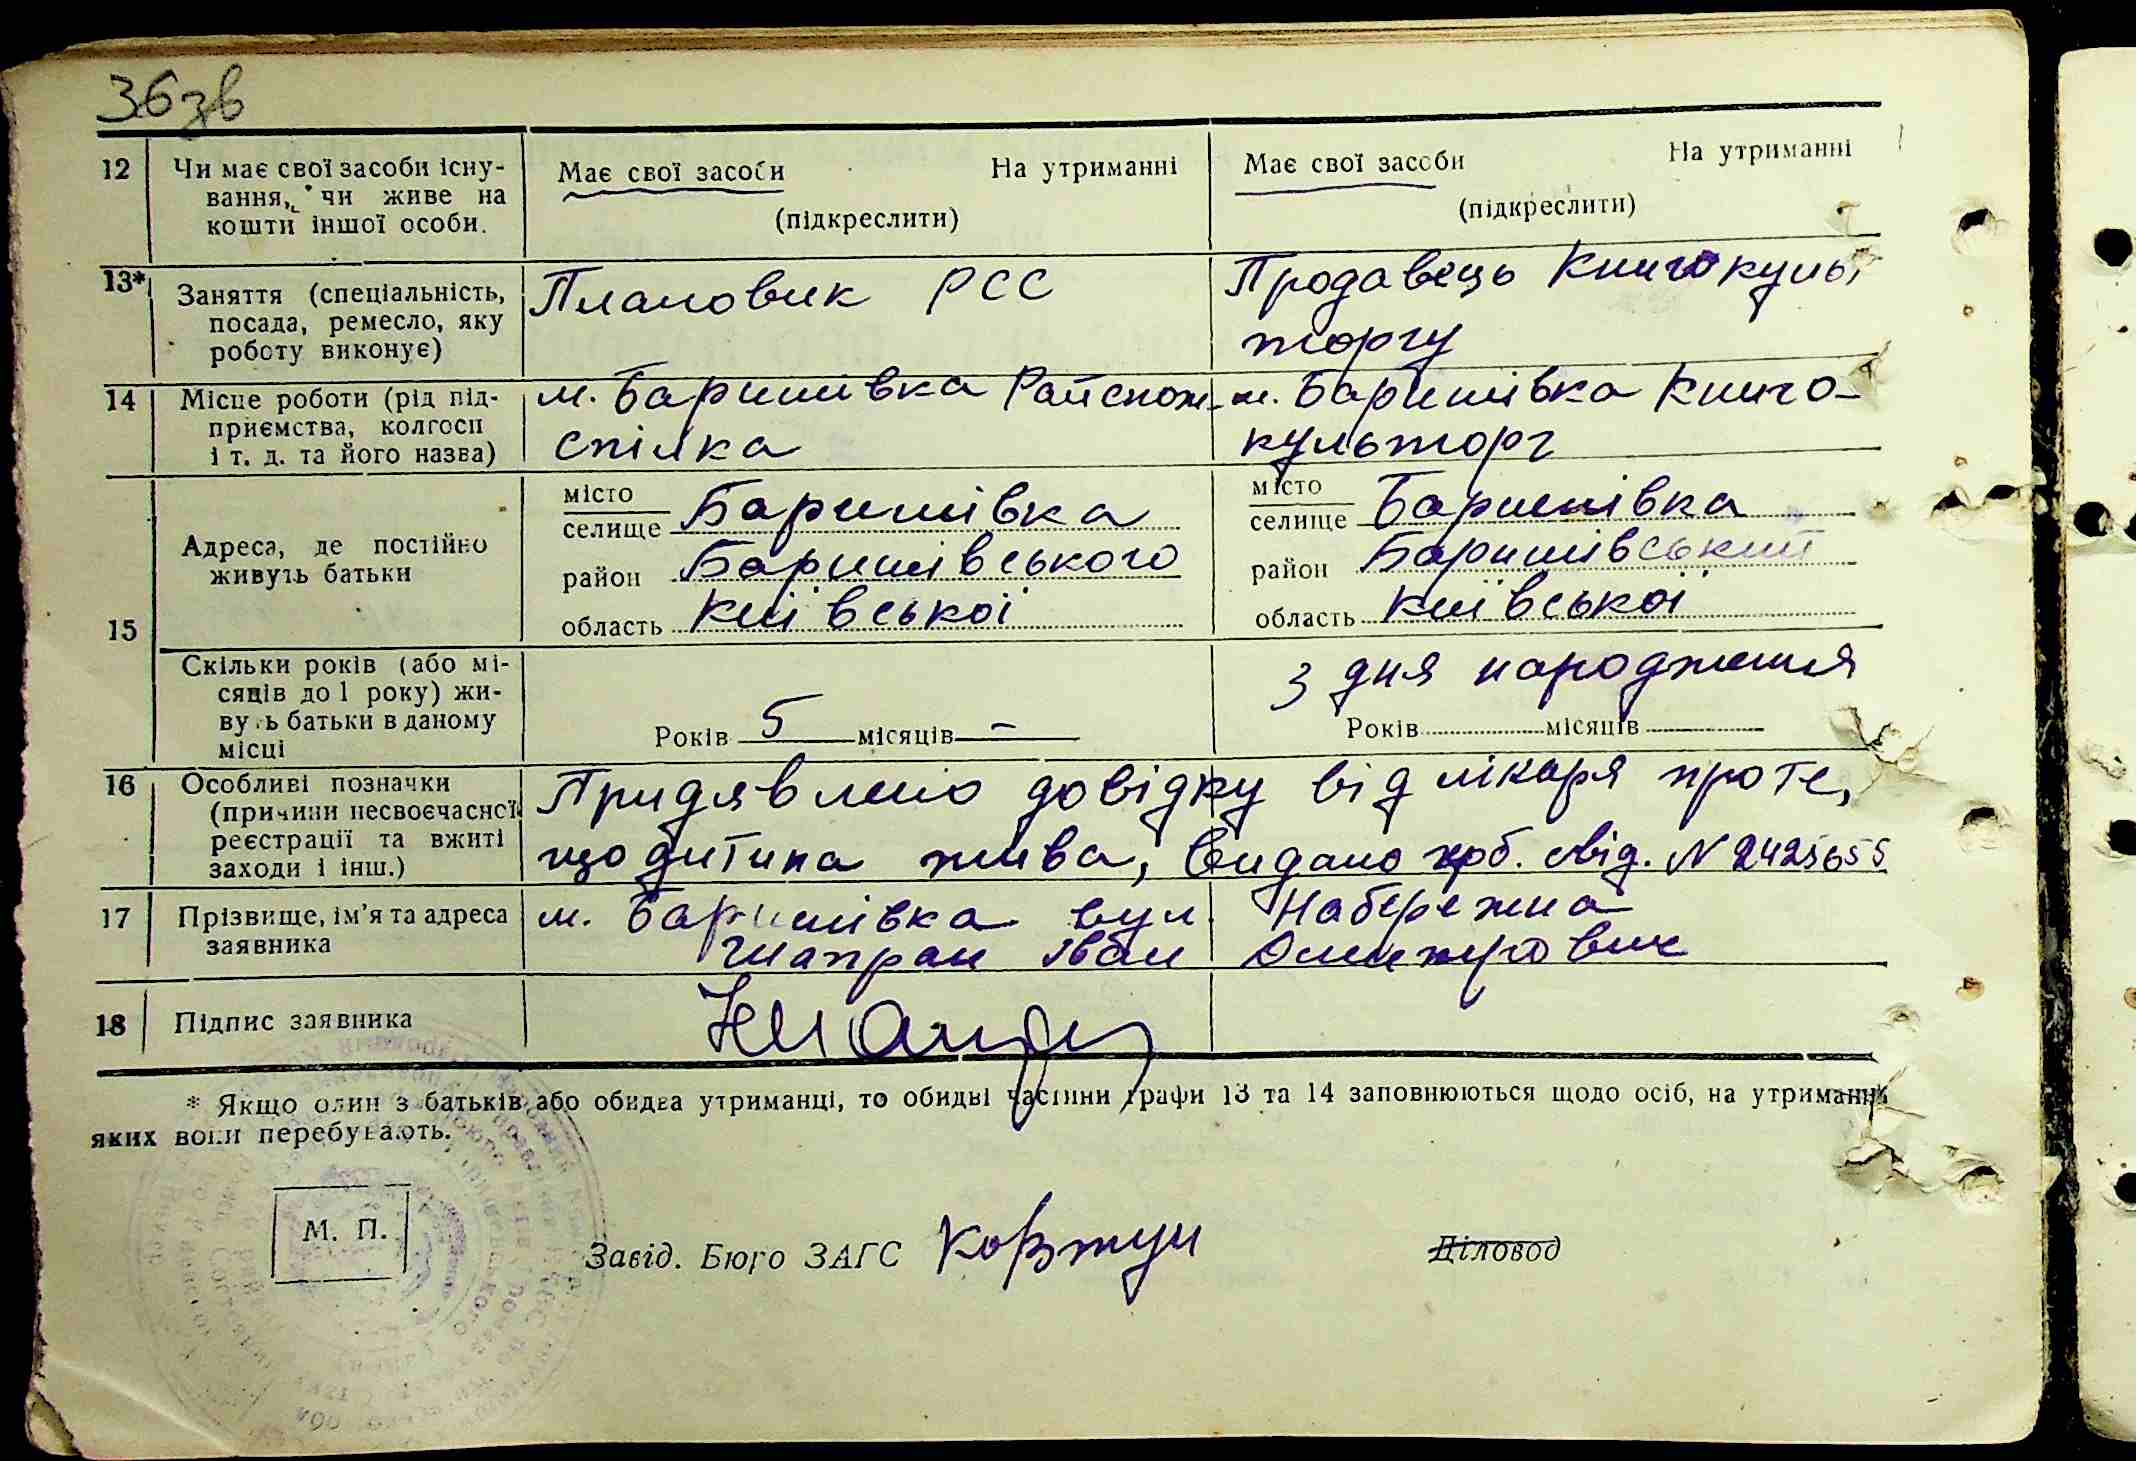 36 зв
12 Чи має свої засоби існу- Має свої засоби На утриманні Має свої засоби На утриманні
вання, чи живе на
кошти іншої особи. (підкреслити) (підкреслити)
13* Заняття (спеціальність, Плановик РСС Продавець Книгокуль
посада, ремесло, яку
роботу виконує) торгу
14 Місце роботи (рід під- м. Баришівка Райспож- м. Баришівка Книго-
приємства, колгосп спілка культорг
і т. д. та його назва)
15 Адреса, де постійно живуть батьки
місто Баришівка місто Баришівка
селище селище
район Баришівського район Баришівський
область Київської область Київської
Скільки років (або мі- з дня народження
сяців до 1 року) жи-
вуть батьки в даному Років 5 місяців – Років місяців
місці
16 Особливі позначки Придявлено довідку від лікаря проте,
(причини несвоєчасної
реєстрації та вжиті що дитина жива, Видано свід. N 2425655
заходи і інш.)
17 Прізвище, ім'я та адреса м. Баришівка вул. Набережна
заявника Шапран Іван
18 Підпис заявника
* Якщо один з батьків або обидва утриманці, то обидві частини графи 13 та 14 заповнюються щодо осіб, на утриманні
яких вони перебувають.
М. П.
Завід. Бюро ЗАГС Коржун Діловод